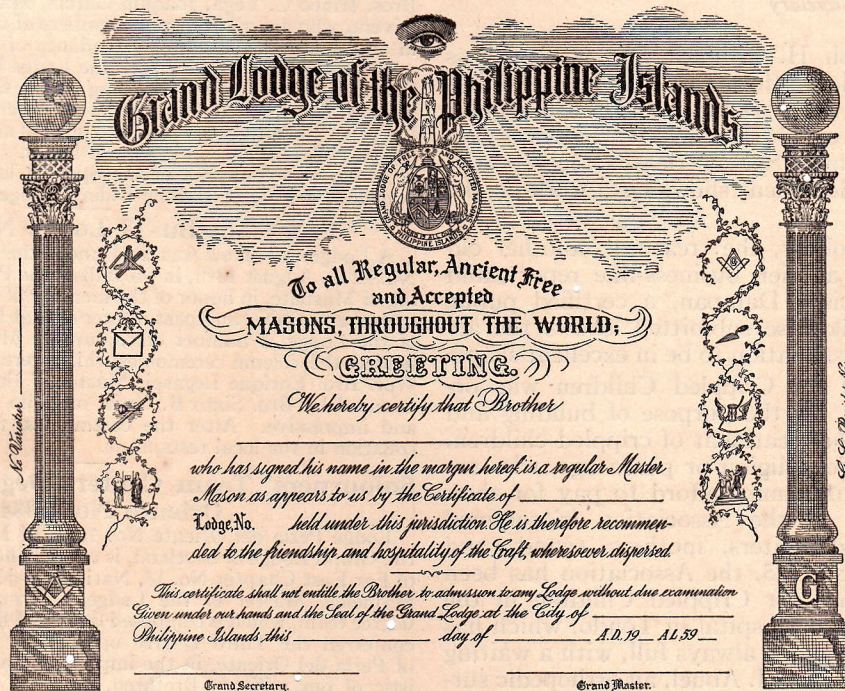 Grand Lodge of the Philippine Islands
GRAND LODGE OF FREE AND ACCEPTED MASONS
PHILIPPINE ISLANDS
To all Regular, Ancient Free
and Accepted
MASONS, THROUGHOUT THE WORLD;
GREETING.
We hereby certify that Brother
who has signed his name in the margin hereof is a regular Master
Mason as appears to us by the Certificate of
Lodge, No. held under this jurisdiction. He is therefore recommen-
ded to the friendship and hospitality of the Caft, wheresoever dispersed.
This certificate shall not entitle the Brother to admission to any Lodge without due examination
Given under our hands and the Seal of the Grand Lodge at the City of
Philippine Islands, this day of A.D. 19 AL 59
Grand Secretary.
Grand Master.
Ne Varietur
G
G